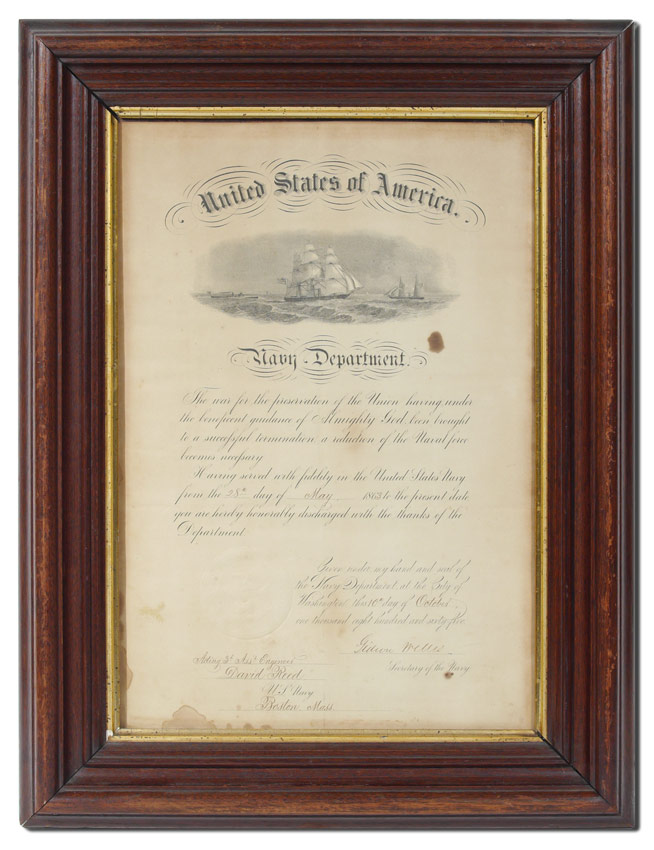 United States of America.
Navy Department.
The war for the preservation of the Union having, under
the beneficent guidance of Almighty God, been brought
to a successful termination a reduction of the Naval force
becomes necessary
Having served with fidelity in the United States Navy
from the 28th day of May 1863 to the present date
you are hereby honorably discharged with the thanks of the
Department
Given under my hand and seal of
the Navy Department, at the City of
Washington, this 10th day of October
one thousand eight hundred and sixty five
Gideon Welles
Secretary of the Navy.
Acting 3d Asst Engineer
David Reed
U.S. Navy
Boston, Mass